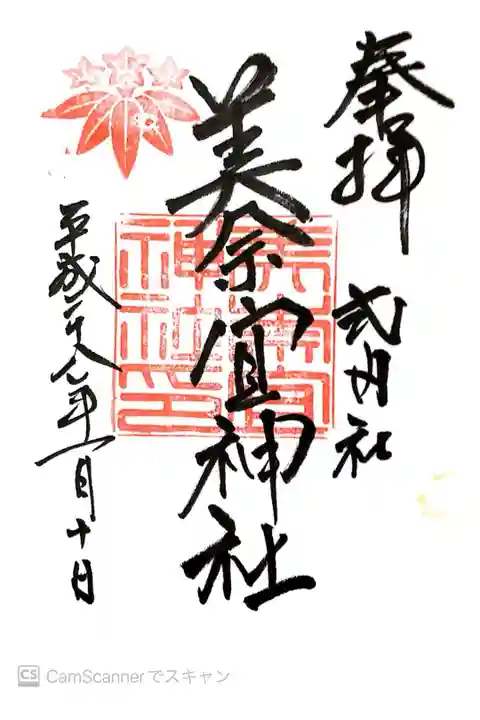 奉拝
式内社
美奈宜神社
平成二十八年一月十日
美奈宜
神社印
CS CamScannerでスキャン